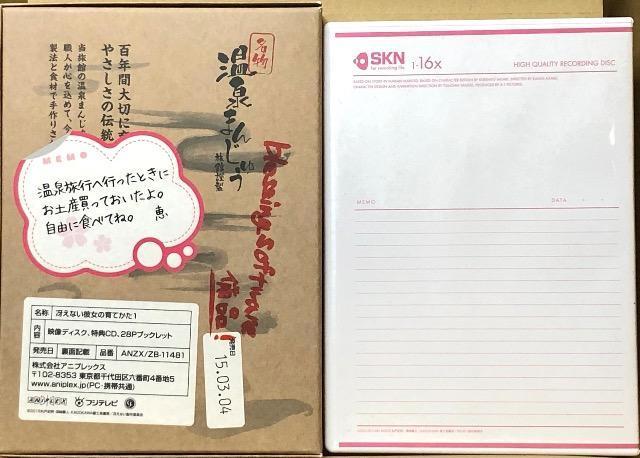 名物
温泉まんじゅう
旅館謹製
百年間大切に
やさしさの伝統
当旅館の温泉まんじ
職人が心を込めて、今
製法と食材で手作り
MEMO
温泉旅行へ行ったときに
お土産買っておいたよ。
自由に食べてね。 恵
blessing software
備品!
名称 冴えない彼女の育てかた1
内容 映像ディスク、特典CD、28Pブックレット
発売日 裏面記載 品番 ANZX/ZB-11481
株式会社アニプレックス
〒102-8353 東京都千代田区六番町4番地5
www.aniplex.jp(PC・携帯共通)
ANIPLEX フジテレビ
発売日
15.03.04
SKN 1-16x
for recording life
HIGH QUALITY RECORDING DISC
MEMO DATA